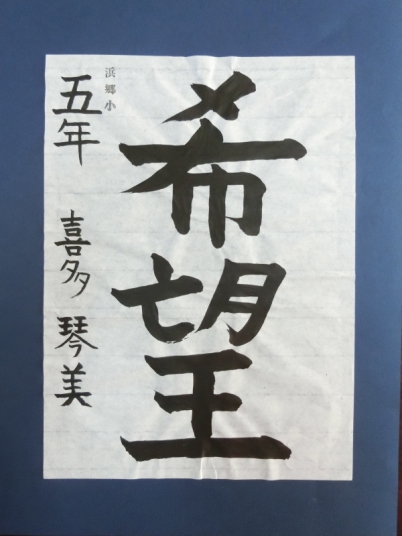 希望
浜郷小
五年 喜多琴美